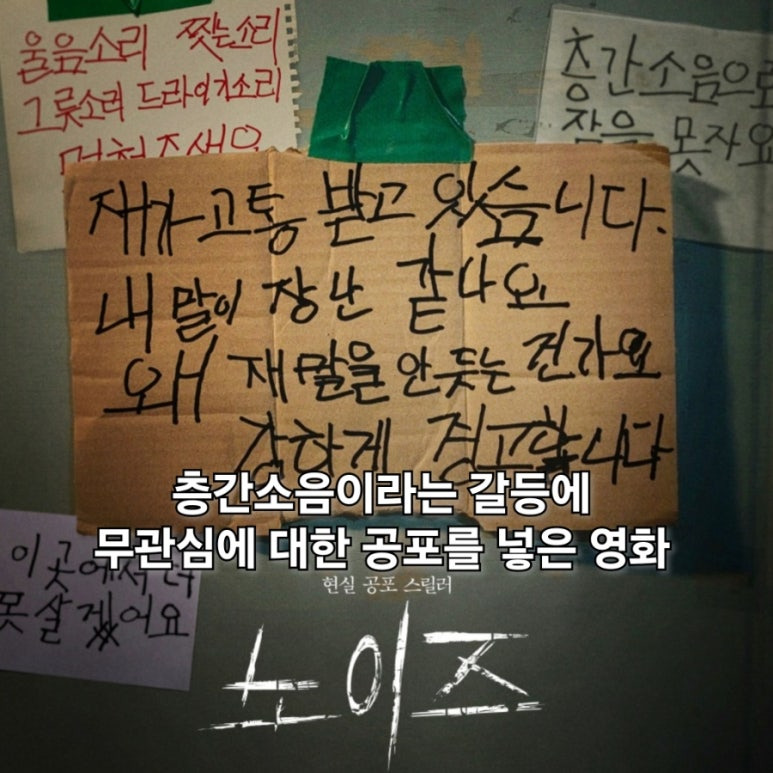 울음소리 찢는소리
그릇소리 드라이기소리
멈춰주세요
층간소음으로
잠을 못자요
재가 고통 받고 있습니다.
내 말이 장난 같나요
왜 재 말을 안 듯는 건가요
강하게 경고합니다
층간소음이라는 갈등에
무관심에 대한 공포를 넣은 영화
이곳에서 더
못살겠어요
현실 공포 스릴러
노이즈